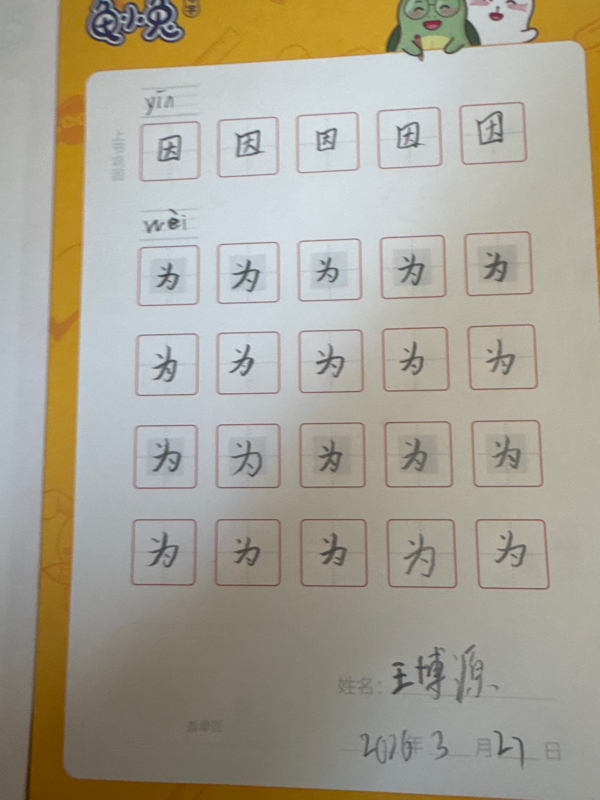 兔小兔
yīn
上节巩固
因 因 因 因 因
wèi
为 为 为 为 为
为 为 为 为 为
为 为 为 为 为
为 为 为 为 为
姓名: 王博源
2026年 3 月 27 日